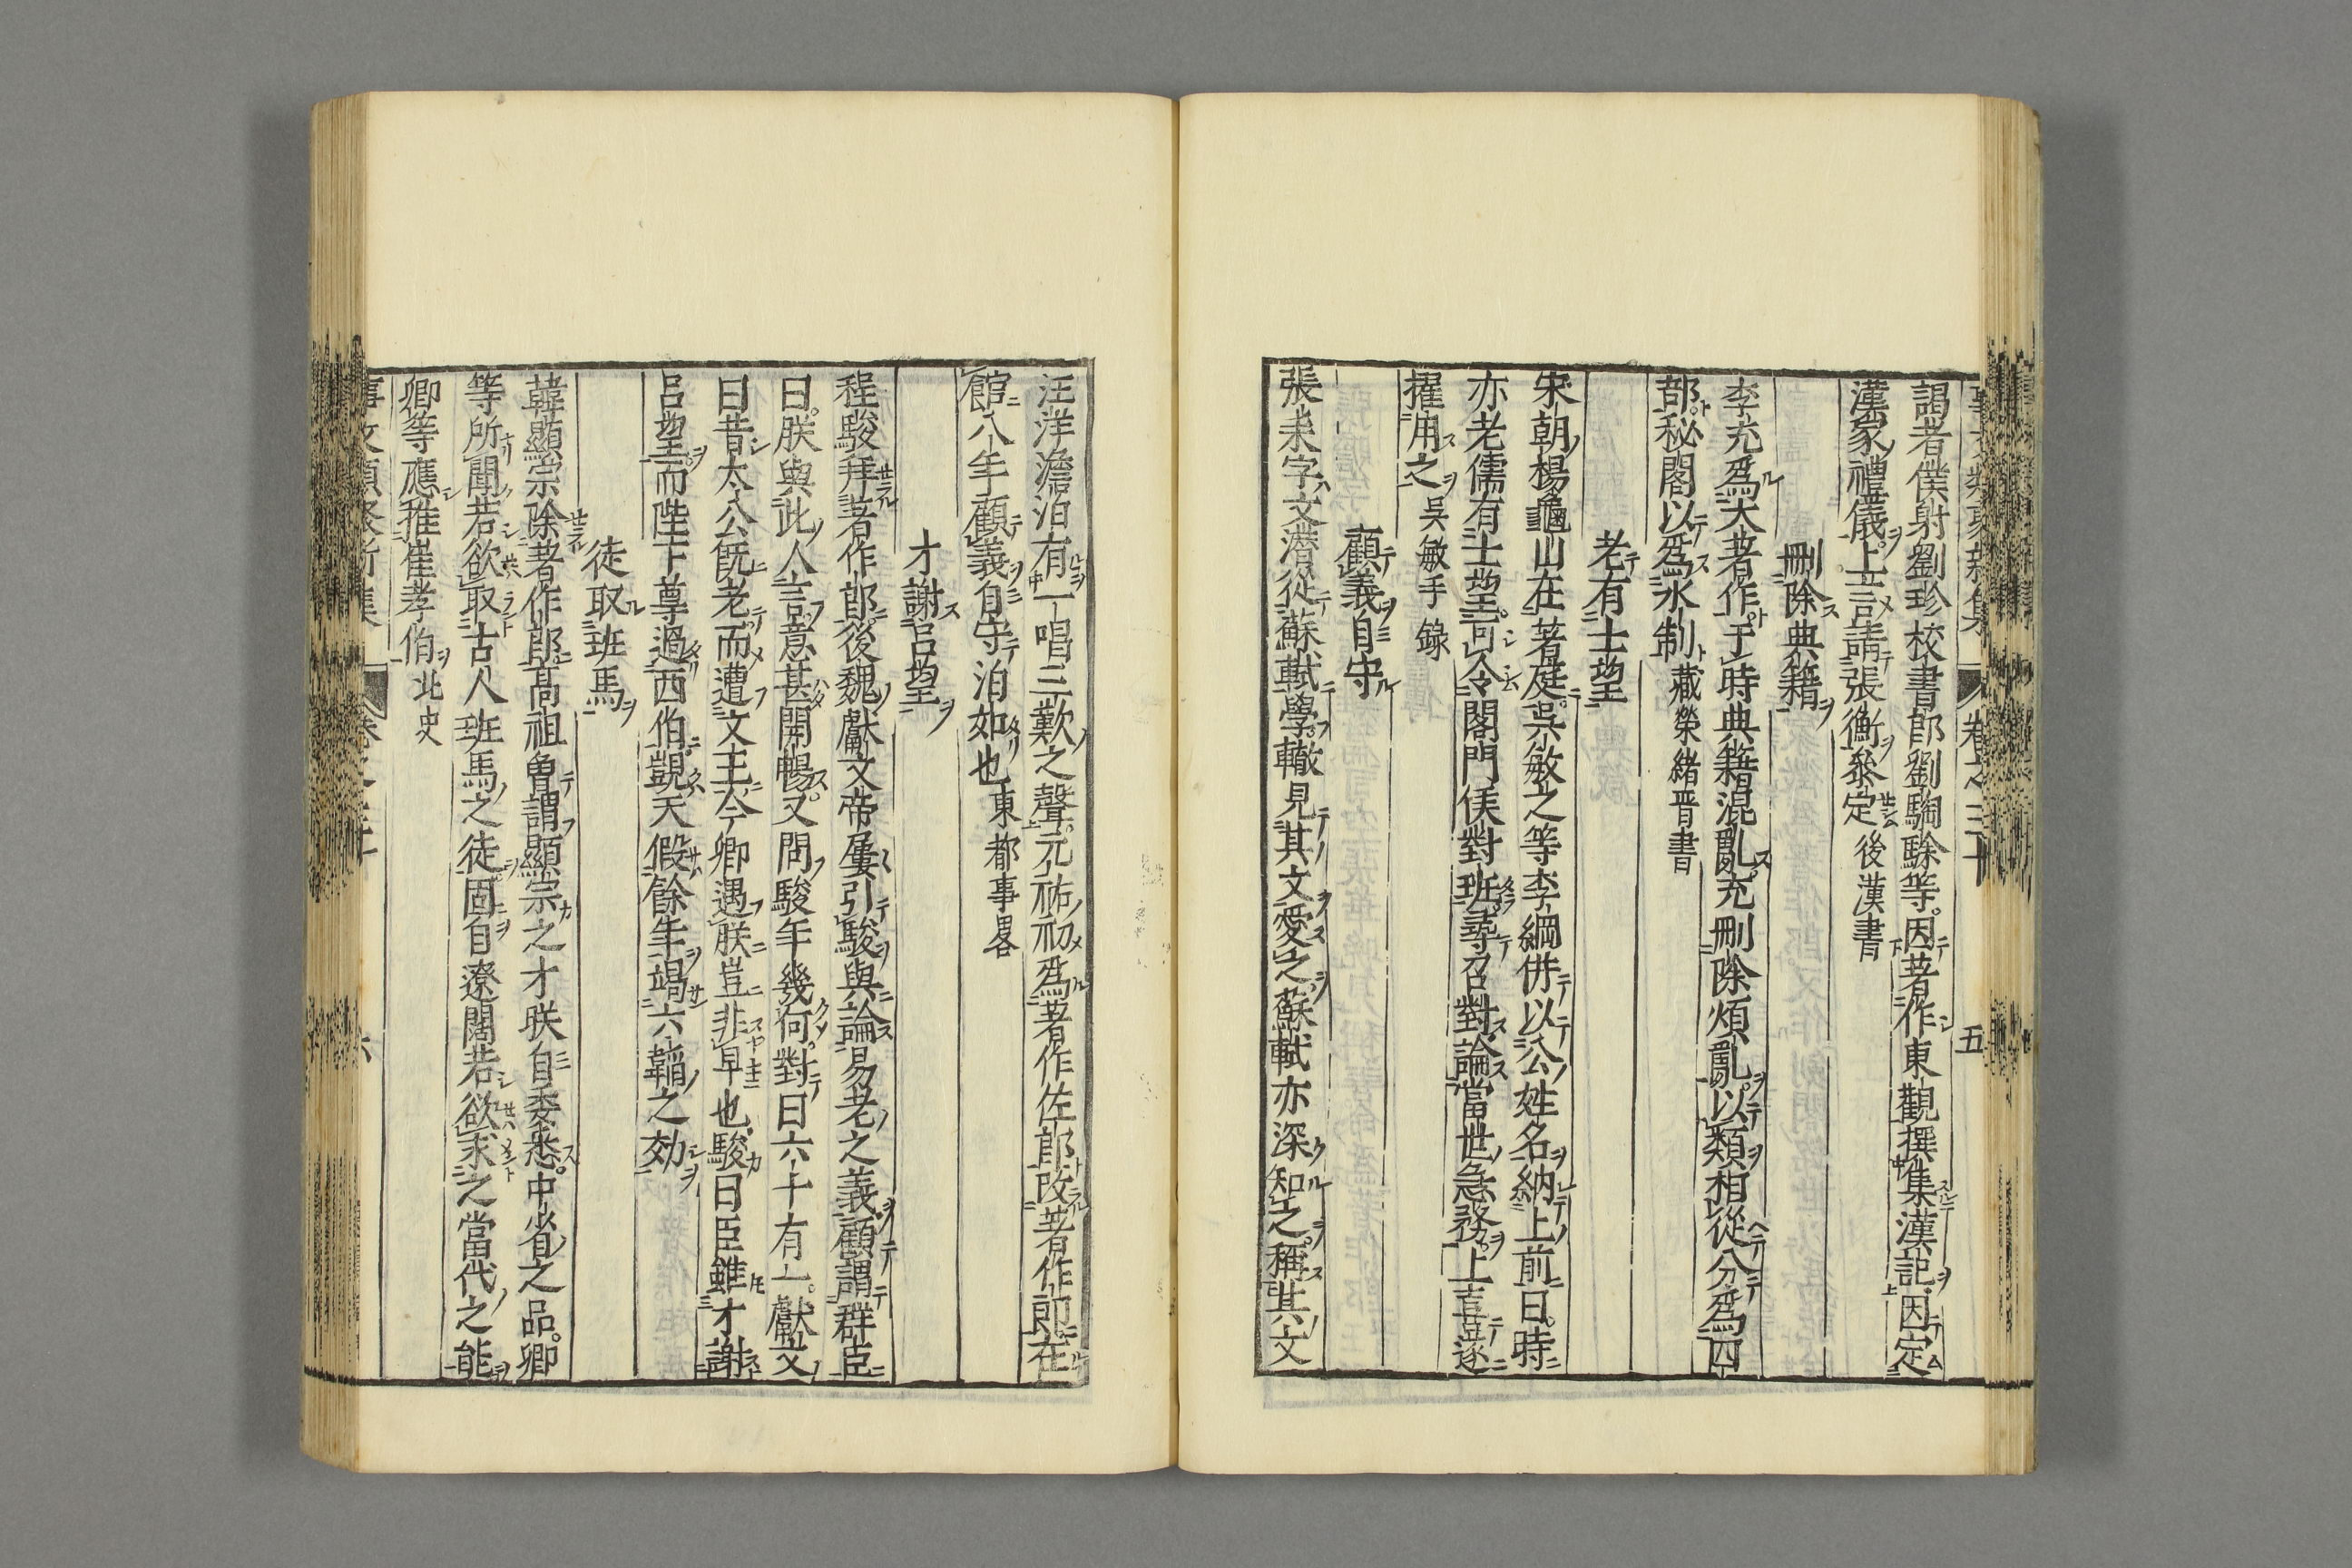 事文類聚新集 卷之三十 五
謁者僕射劉珍校書郎劉騊駼等因著作東觀撰集漢記因定
漢家禮儀上言請張衡參定 後漢書
刪除典籍
李充爲大著作于時典籍混亂充刪除煩亂以類相從分爲四
部秘閣以爲永制 藏榮緒晋書
老有士望
宋朝楊龜山在著庭吳敏之等李綱併以公姓名納上前曰時
亦老儒有士望可令閤門俟對班尋召對論當世急務上喜遂
擢用之 吳敏手錄
顧義自守
張耒字文潛從蘇軾學轍見其文愛之蘇軾亦深知之稱其文
汪洋澹泊有一唱三歎之聲元祐初爲著作佐郎改著作郎在
館八年顧義自守泊如也 東都事畧
才謝呂望
程駿拜著作郎後魏獻文帝屢引駿與論易老之義顧謂群臣
曰朕與此人言意甚開暢又問駿年幾何對曰六十有一獻文
曰昔太公旣老而遭文王今卿遇朕豈非早也駿曰臣雖才謝
呂望而陛下尊過西伯覬天假餘年竭六韜之効
徒取班馬
韓顯宗除著作郎髙祖曽謂顯宗之才朕自委悉中省之品卿
等所聞若欲取古人班馬之徒固自遼闊若欲求之當代之能
卿等應推崔孝伯 北史
事文類聚新集 卷之三十 六